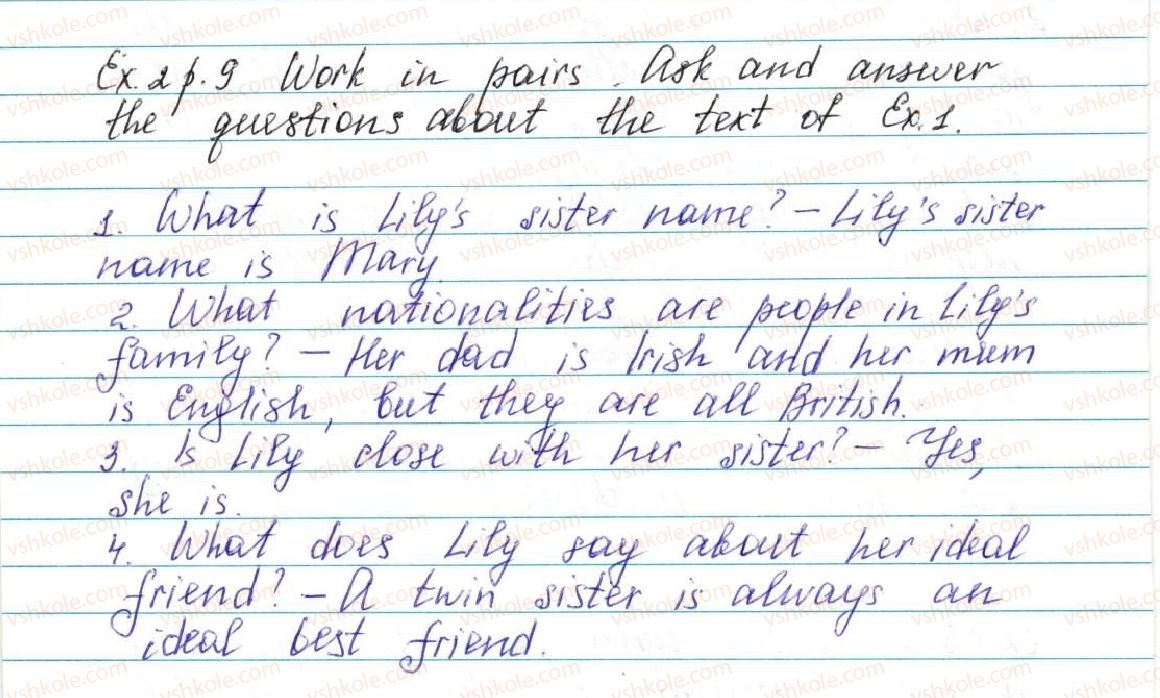 Ex. 2 p. 9 Work in pairs. Ask and answer
the questions about the text of Ex. 1.
1. What is Lily's sister name? – Lily's sister
name is Mary
2. What nationalities are people in Lily's
family? – Her dad is Irish and her mum
is English, but they are all British.
3. Is Lily close with her sister? – Yes,
she is.
4. What does Lily say about her ideal
friend? – A twin sister is always an
ideal best friend.